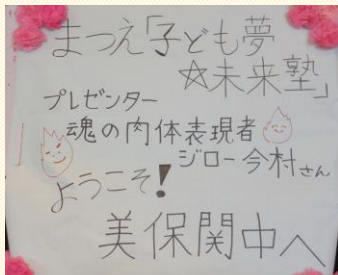 まつえ「子ども夢
☆未来塾」
プレゼンター
魂の肉体表現者
ジロー今村さん
ようこそ!
美保関中へ